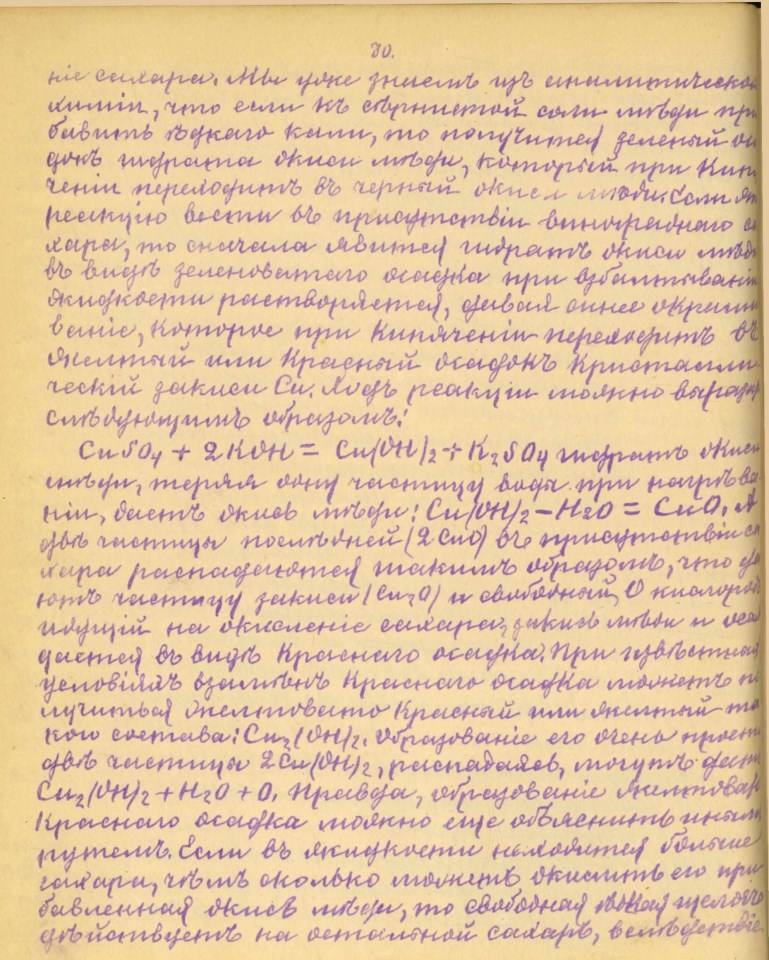 30.
ніе сахара. Мы уже знаемъ изъ аналитической
химіи, что если къ сѣрнистой соли мѣди при
бавить ѣдкаго кали, то получится зеленый оса
докъ гидрата окиси мѣди, который при кипя
ченіи переходитъ въ черный окиси мѣди. Если эту
реакцію вести въ присутствіи винограднаго са
хара, то сначала явится гидратъ окиси мѣди
въ видѣ зеленоватаго осадка при взбалтываніи
жидкости растворяется, давая синее окраши
ваніе, которое при кипяченіи переходитъ въ
желтый или красный осадокъ кристалли
ческій закиси Cu. Ходъ реакціи можно выразить
слѣдующимъ образомъ:
CuSO4 + 2KOH = Cu(OH)2 + K2SO4 гидратъ окиси
мѣди, теряя одну частицу воды при нагрѣва
ніи, дастъ окись мѣди: Cu(OH)2 – H2O = CuO. А
двѣ частицы послѣдней (2CuO) въ присутствіи са
хара распадаются такимъ образомъ, что да
ютъ частицу закиси (Cu2O) и свободный O кислородъ
идущій на окисленіе сахара, закись мѣди и оса
дается въ видѣ краснаго осадка. При извѣстныхъ
условіяхъ взамѣнъ краснаго осадка можетъ по
лучиться желтовато красный или желтый та
кого состава: Cu2(OH)2. Образованіе его очень просто
двѣ частицы 2Cu(OH)2, распадаясь, могутъ дать
Cu2(OH)2 + H2O + O. Правда, образованіе желтова
краснаго осадка можно еще объяснить инымъ
путемъ. Если въ жидкости находится больше
сахара, чѣмъ сколько можетъ окислить его при
бавленная окись мѣди, то свободная ѣдкая щелочь
дѣйствуетъ на остальной сахаръ, вслѣдствіе